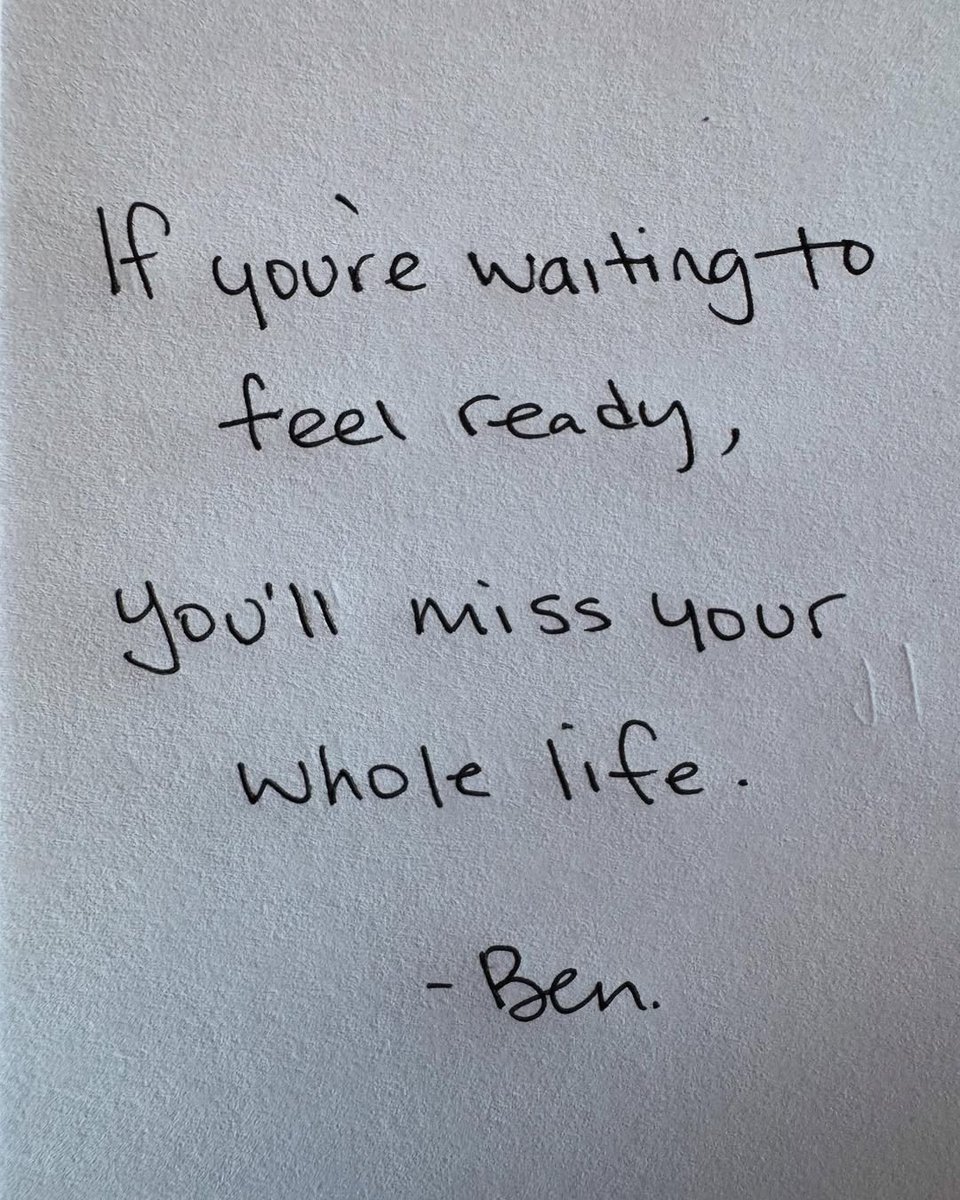 If you're waiting to
feel ready,
you'll miss your
whole life.
- Ben.